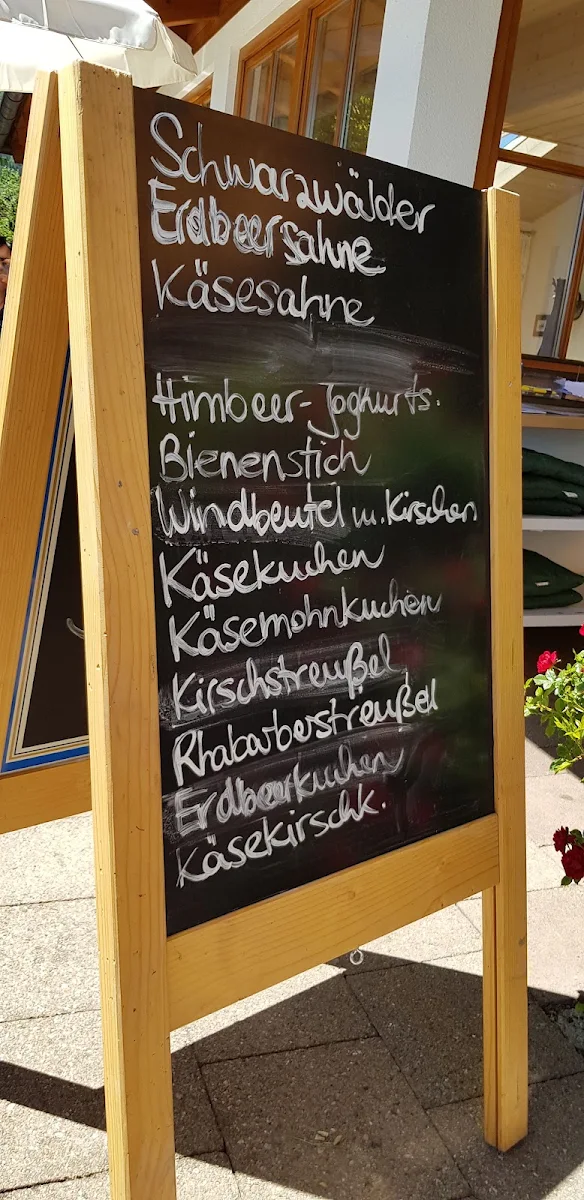 Schwarzwälder
Erdbeersahne
Käsesahne
Himbeer-Joghurts.
Bienenstich
Windbeutel m. Kirschen
Käsekuchen
Käsemohnkuchen
Kirschstreußel
Rhabarberstreußel
Erdbeerkuchen
Käsekirschk.